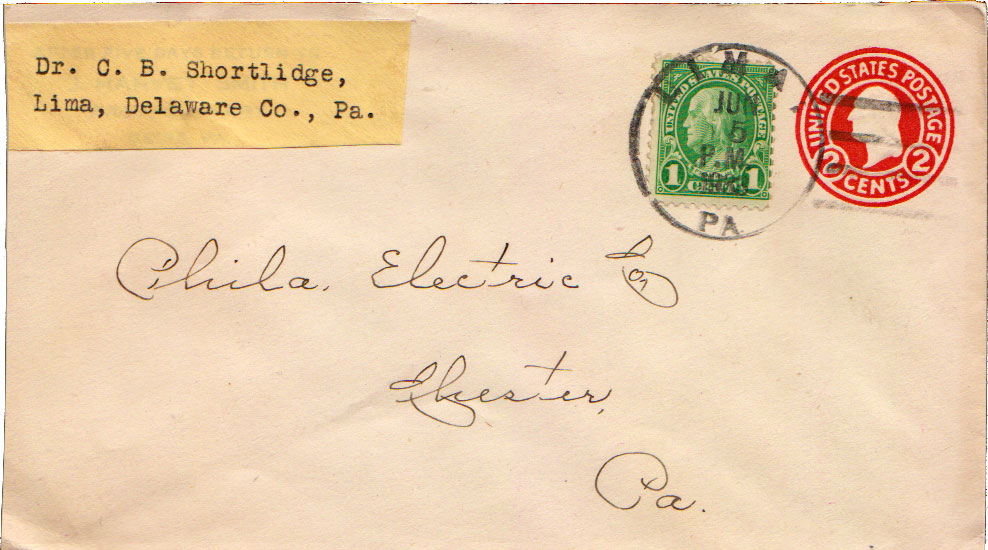 Dr. C. B. Shortlidge,
Lima, Delaware Co., Pa.
UNITED STATES POSTAGE
1 1
LIMA
JUN
5
P.M
PA
UNITED STATES POSTAGE
2 CENTS 2
Phila. Electric Co,
Chester,
Pa.